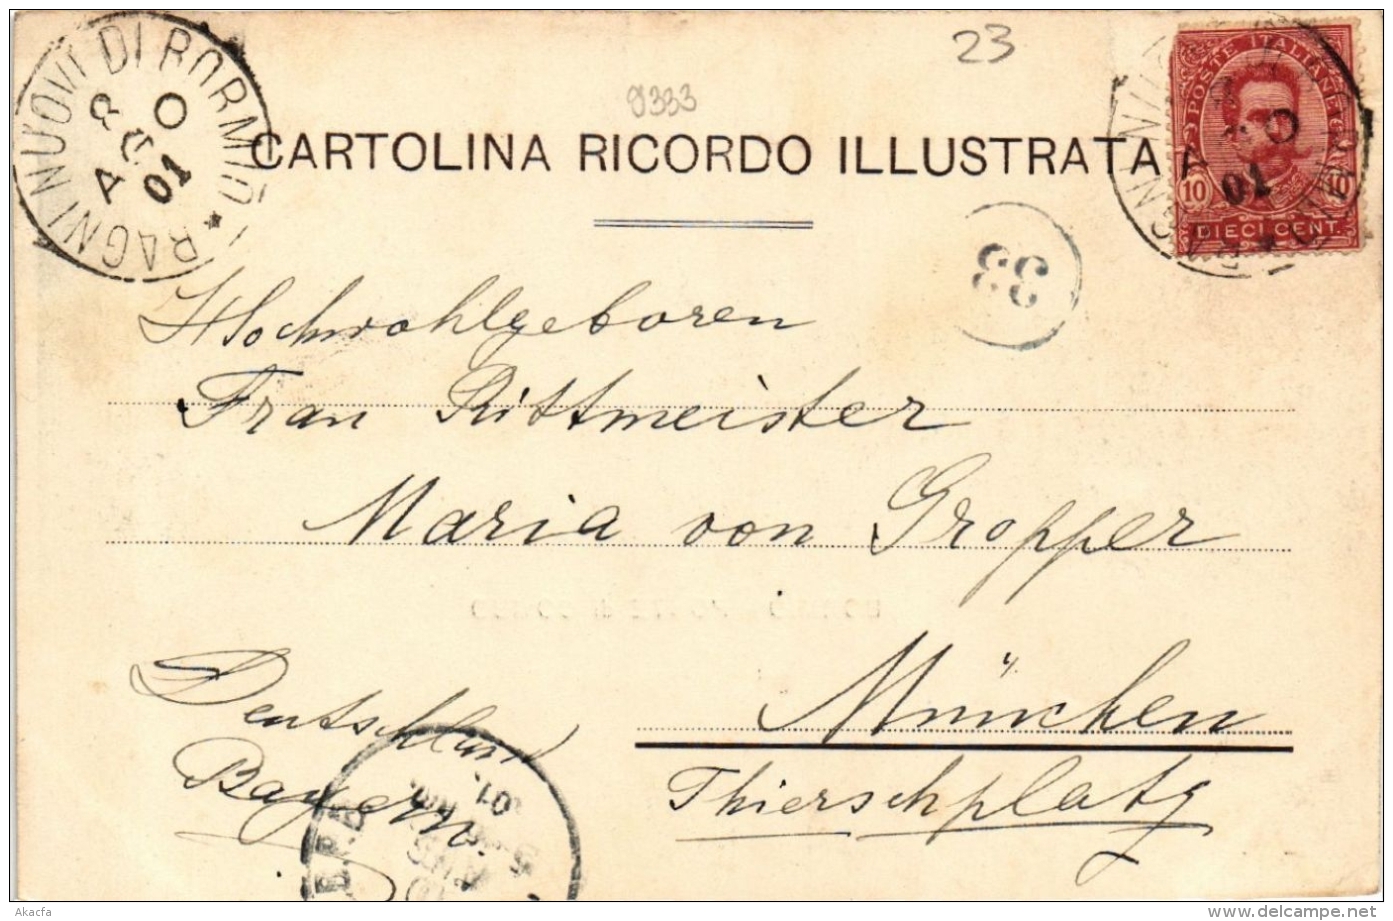 23
9333
BAGNI NUOVI DI BORMIO
01
POSTE ITALIANE
10 10
DIECI CENT.
CARTOLINA RICORDO ILLUSTRATA
33
Hochwohlgeboren
Frau Rittmeister
Maria von Gropper
München
Thierschplatz
Deutschland
Bayern
01.
Akacfa
delcampe.net